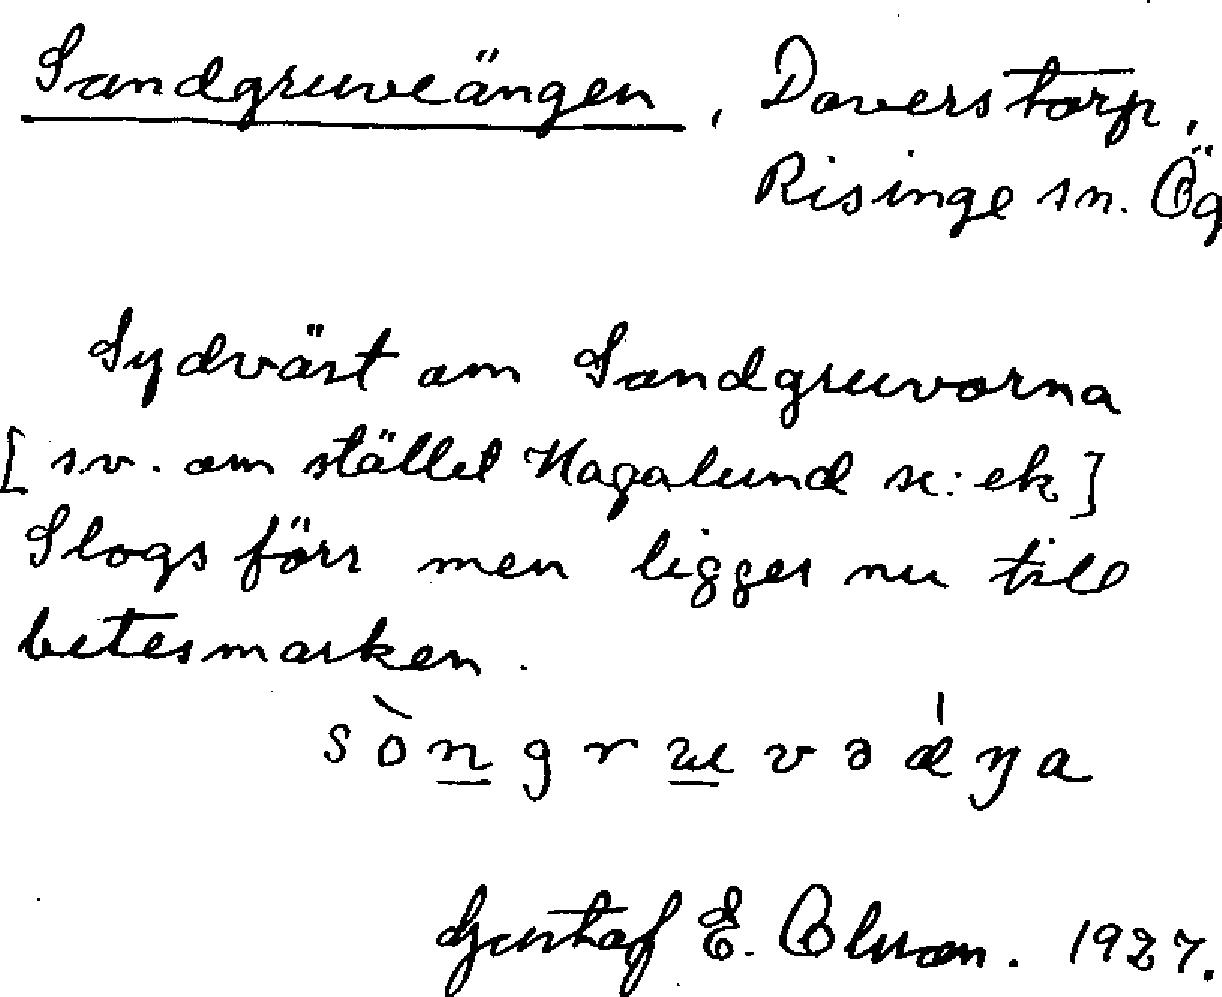 Sandgruveängen, Daverstorp,
Risinge sn. Ög
Sydväst om Sandgruvorna
[sv. om stället Hagalund sc: ek]
Slogs förr men ligger nu till
betesmarken.
sòn̲gru̲vəǽŋa
Gustaf E. Olsson. 1927.